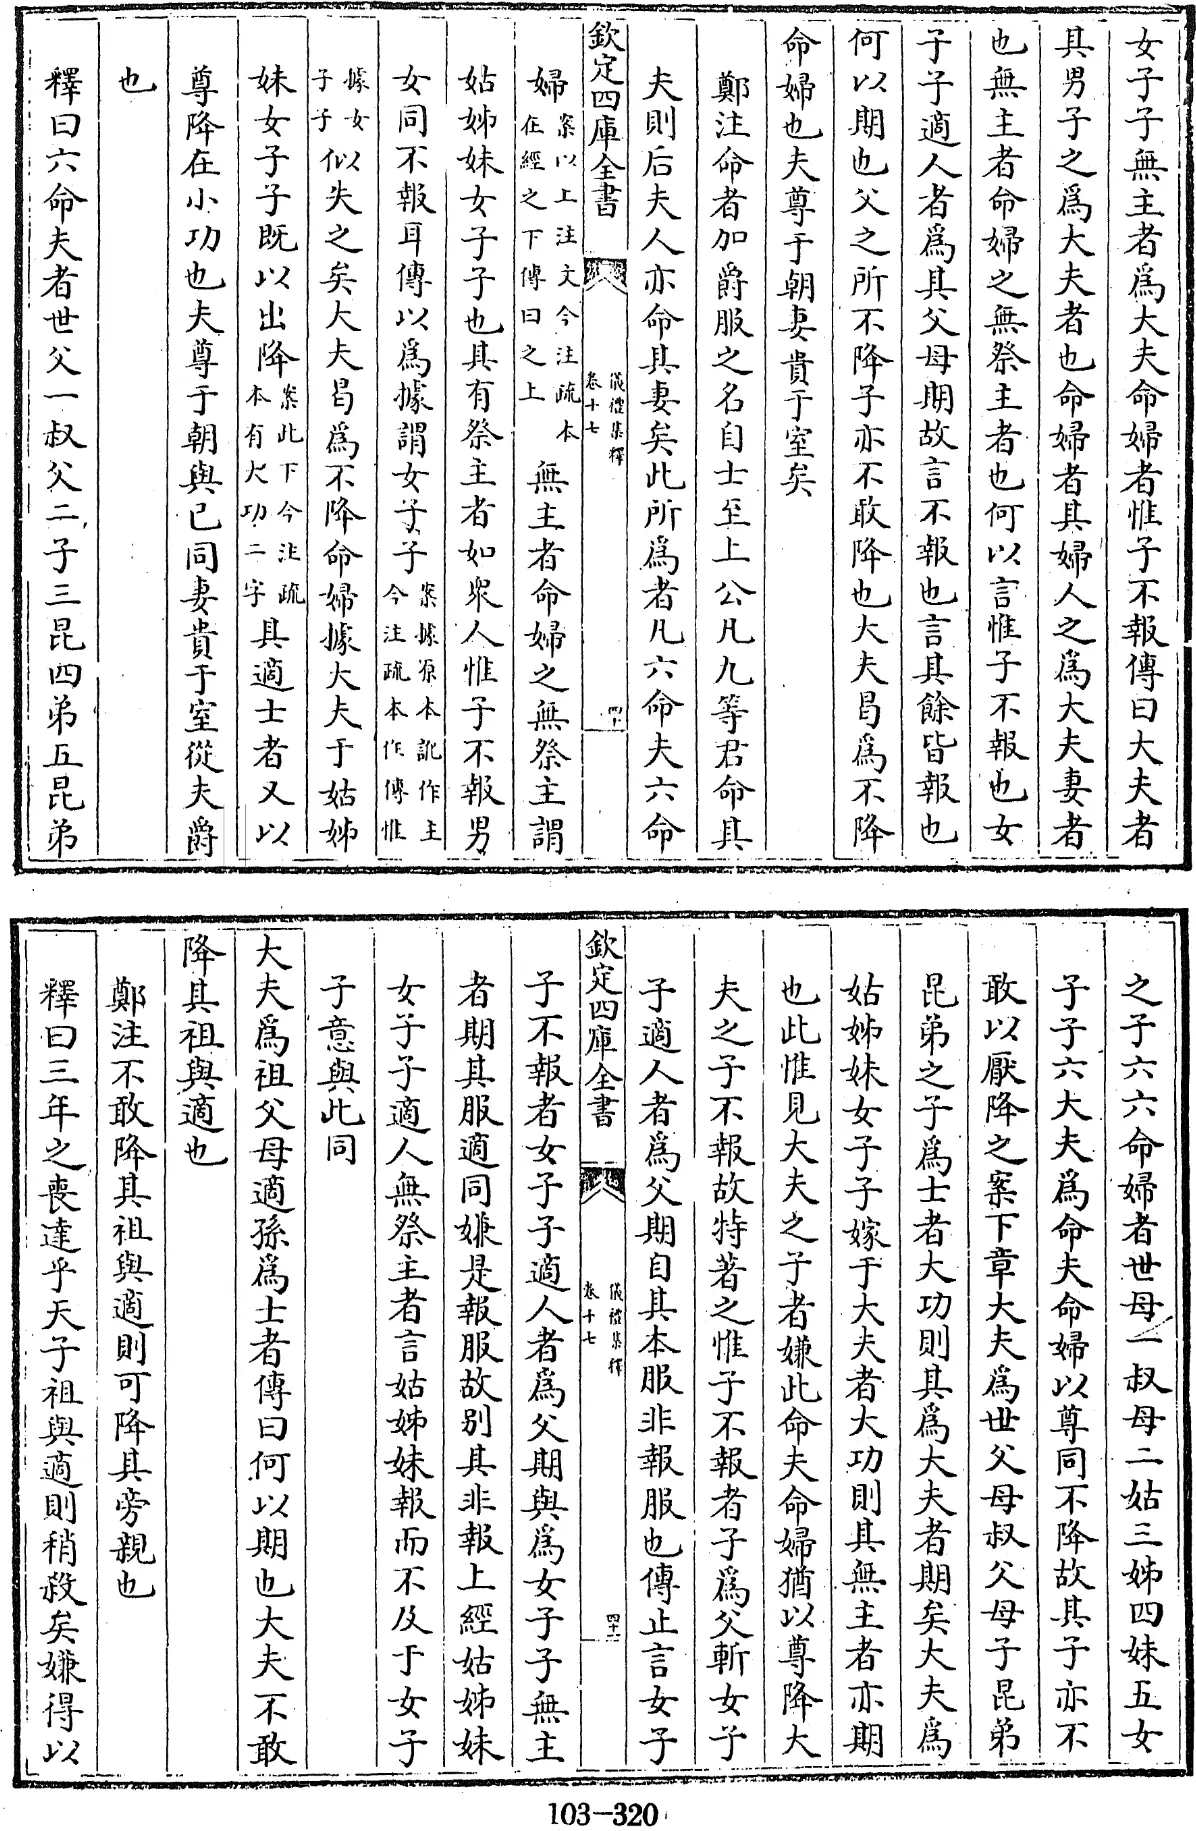 女子子無主者爲大夫命婦者惟子不報傳曰大夫者
其男子之爲大夫者也命婦者其婦人之爲大夫妻者
也無主者命婦之無祭主者也何以言惟子不報也女
子子適人者爲其父母期故言不報也言其餘皆報也
何以期也父之所不降子亦不敢降也大夫曷爲不降
命婦也夫尊于朝妻貴于室矣
鄭注命者加爵服之名自士至上公凡九等君命其
夫則后夫人亦命其妻矣此所爲者凡六命夫六命
欽定四庫全書 儀禮集釋 卷十七 四十
婦案以上注文今注疏本在經之下傳曰之上無主者命婦之無祭主謂
姑姊妹女子子也其有祭主者如衆人惟子不報男
女同不報耳傳以爲據謂女子子案據原本訛作主今注疏本作傳惟
據女子子似失之矣大夫曷爲不降命婦據大夫于姑姊
妹女子子既以出降案此下今注疏本有大功二字其適士者又以
尊降在小功也夫尊于朝與己同妻貴于室從夫爵
也
釋曰六命夫者世父一叔父二子三昆四弟五昆弟
之子六六命婦者世母一叔母二姑三姊四妹五女
子子六大夫爲命夫命婦以尊同不降故其子亦不
敢以厭降之案下章大夫爲世父母叔父母子昆弟
昆弟之子爲士者大功則其爲大夫者期矣大夫爲
姑姊妹女子子嫁于大夫者大功則其無主者亦期
也此惟見大夫之子者嫌此命夫命婦猶以尊降大
夫之子不報故特著之惟子不報者子爲父斬女子
子適人者爲父期自其本服非報服也傳止言女子
欽定四庫全書 儀禮集釋 卷十七 四十一
子不報者女子子適人者爲父期與爲女子子無主
者期其服適同嫌是報服故别其非報上經姑姊妹
女子子適人無祭主者言姑姊妹報而不及于女子
子意與此同
大夫爲祖父母適孫爲士者傳曰何以期也大夫不敢
降其祖與適也
鄭注不敢降其祖與適則可降其旁親也
釋曰三年之喪達乎天子祖與適則稍殺矣嫌得以
103-320